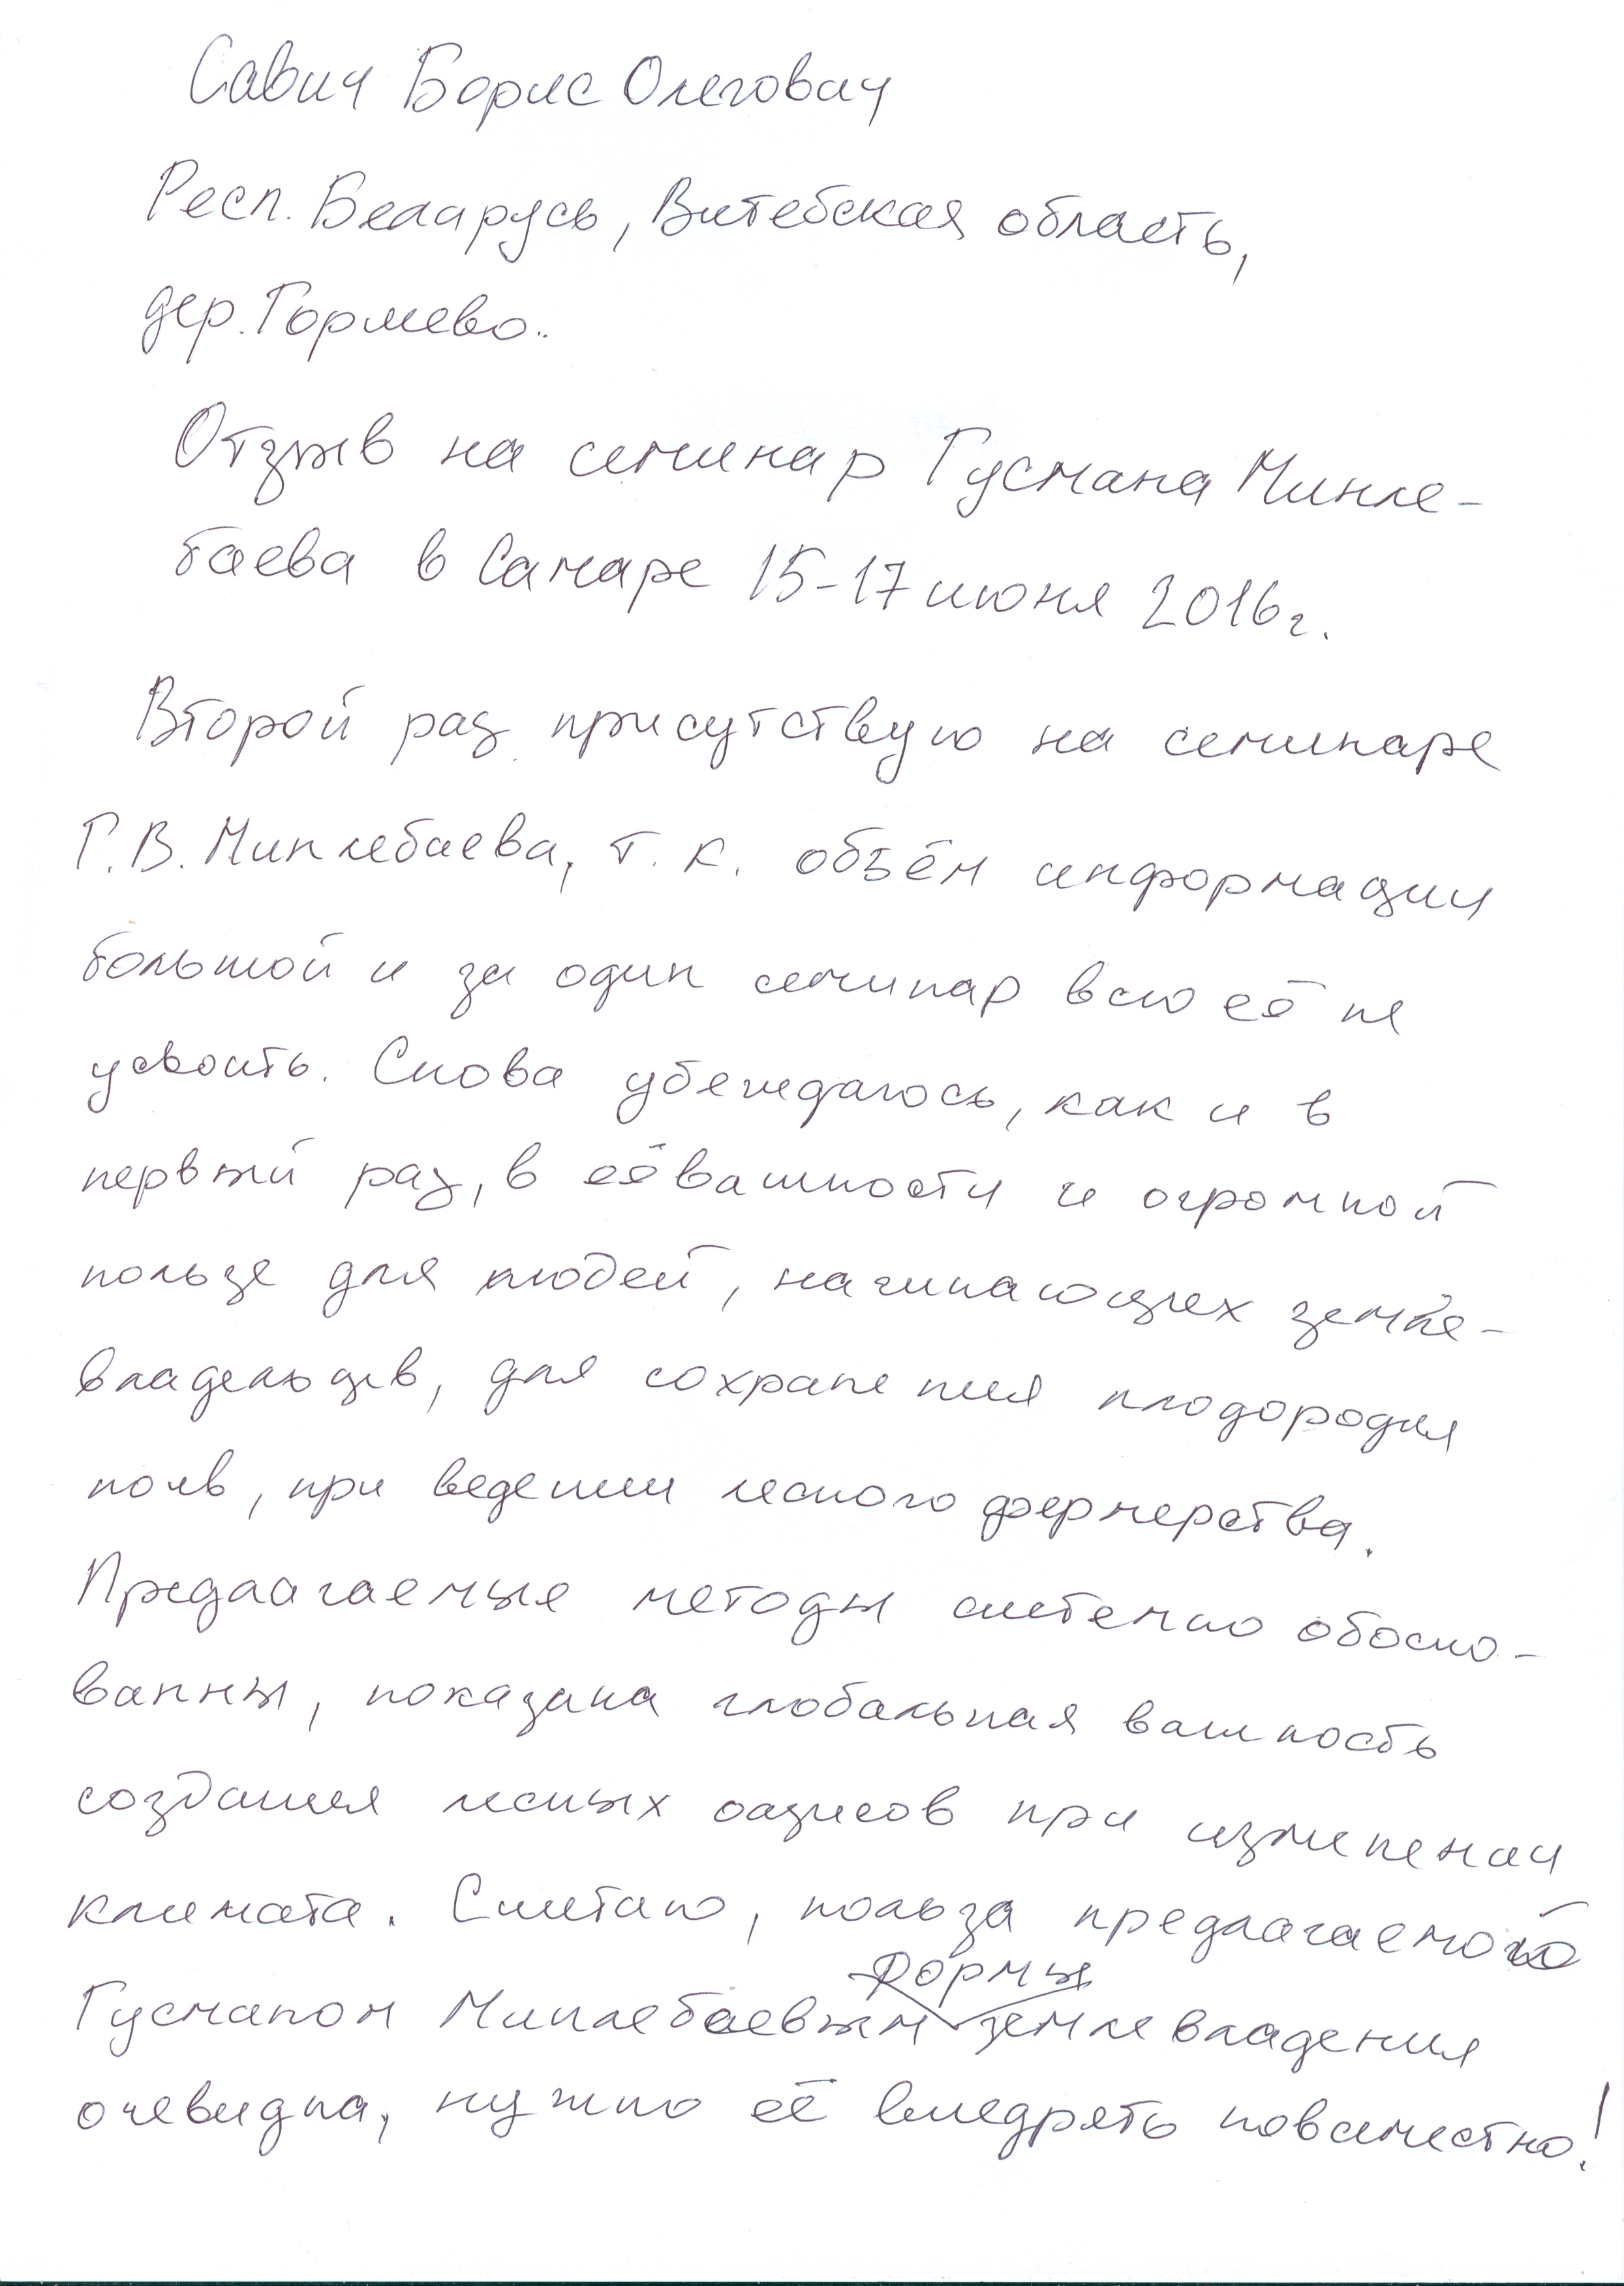 Савич Борис Олегович
Респ. Беларусь, Витебская область,
дер. Гормево..
Отзыв на семинар Гусмана Минле-
баева в Самаре 15-17 июня 2016г.
Второй раз присутствую на семинаре
Г.В. Минлебаева, т.к. объём информации
большой и за один семинар всю её не
усвоить. Снова убеждаюсь, как и в
первый раз, в её важности и огромной
пользе для людей, начинающих земле-
владельцев, для сохранения плодородия
почв, при ведении лесного фермерства.
Предлагаемые методы системно обосно-
ванны, показана глобальная важность
создания лесных оазисов при изменении
климата. Считаю, польза предлагаемой
формы
Гусманом Минлебаевым землевладения
очевидна, нужно её внедрять повсеместно!